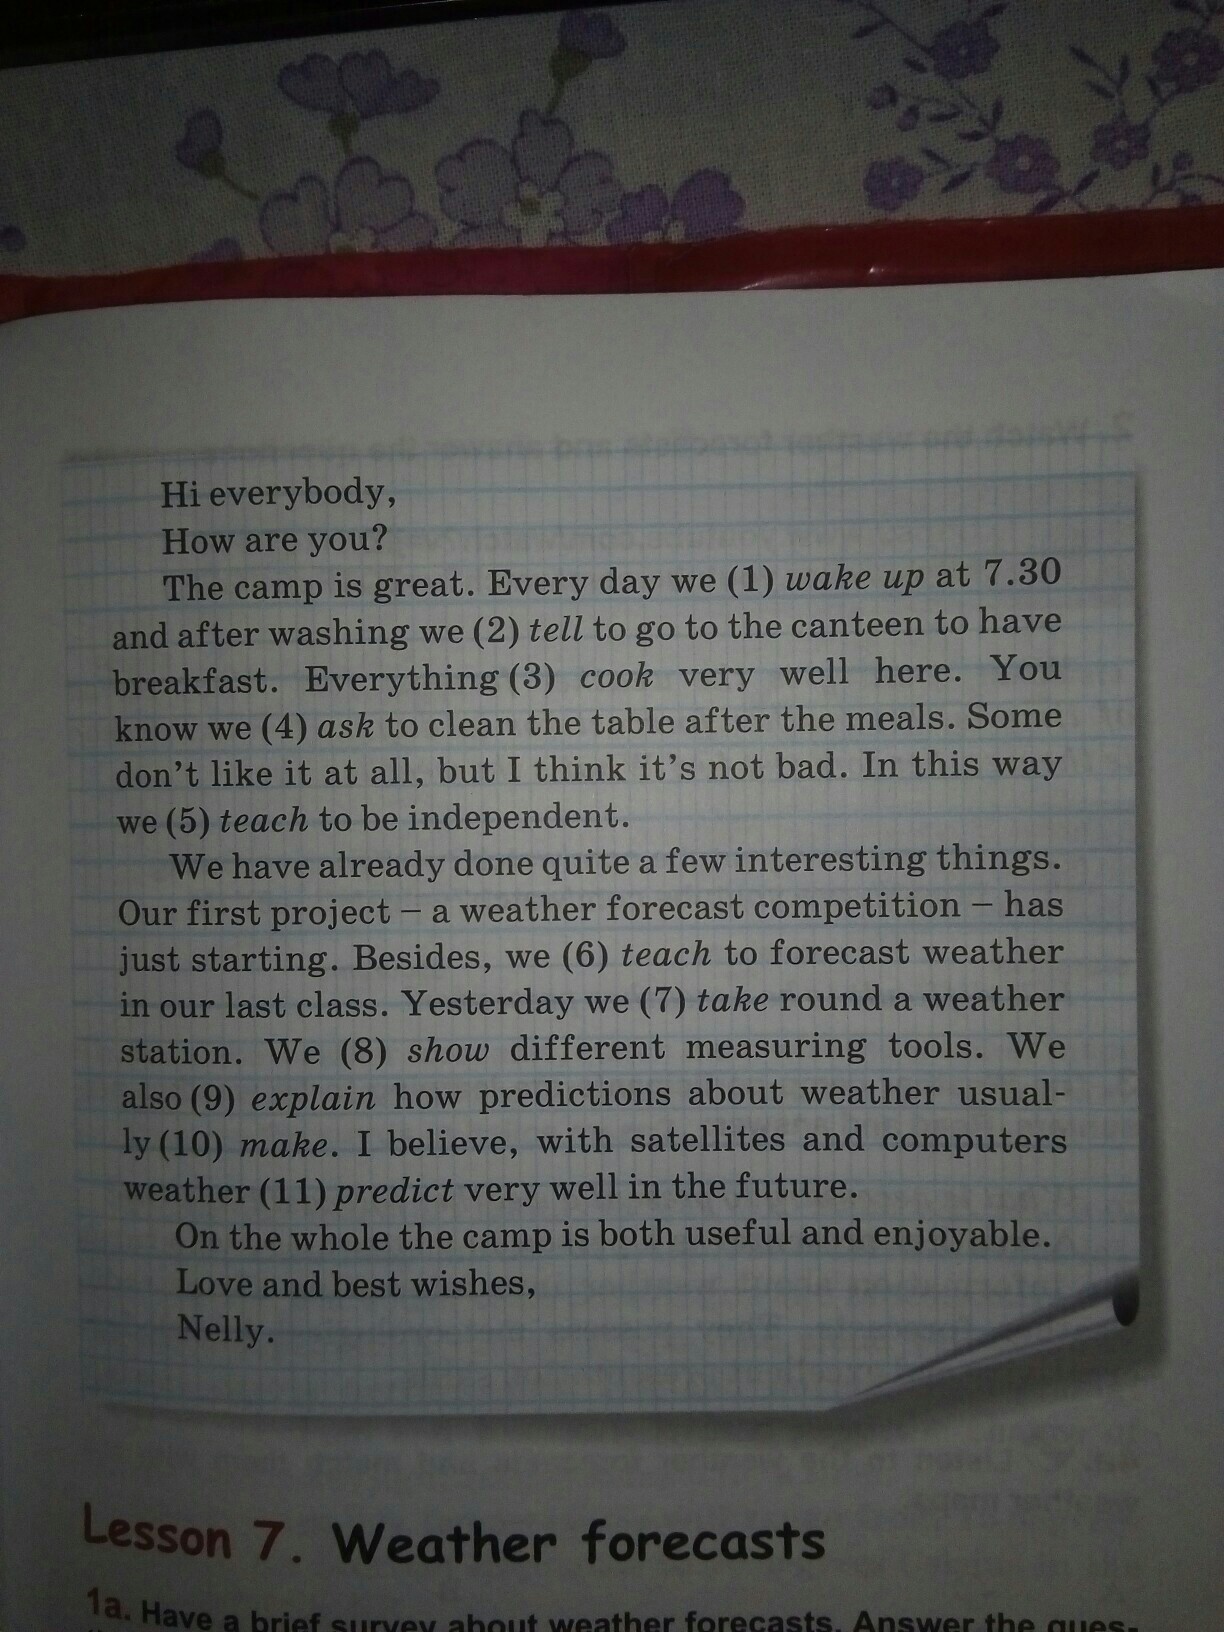 Hi everybody,
How are you?
The camp is great. Every day we (1) wake up at 7.30
and after washing we (2) tell to go to the canteen to have
breakfast. Everything (3) cook very well here. You
know we (4) ask to clean the table after the meals. Some
don't like it at all, but I think it's not bad. In this way
we (5) teach to be independent.
We have already done quite a few interesting things.
Our first project – a weather forecast competition – has
just starting. Besides, we (6) teach to forecast weather
in our last class. Yesterday we (7) take round a weather
station. We (8) show different measuring tools. We
also (9) explain how predictions about weather usual-
ly (10) make. I believe, with satellites and computers
weather (11) predict very well in the future.
On the whole the camp is both useful and enjoyable.
Love and best wishes,
Nelly.
Lesson 7. Weather forecasts
1a. Have a brief survey about weather forecasts. Answer the ques-